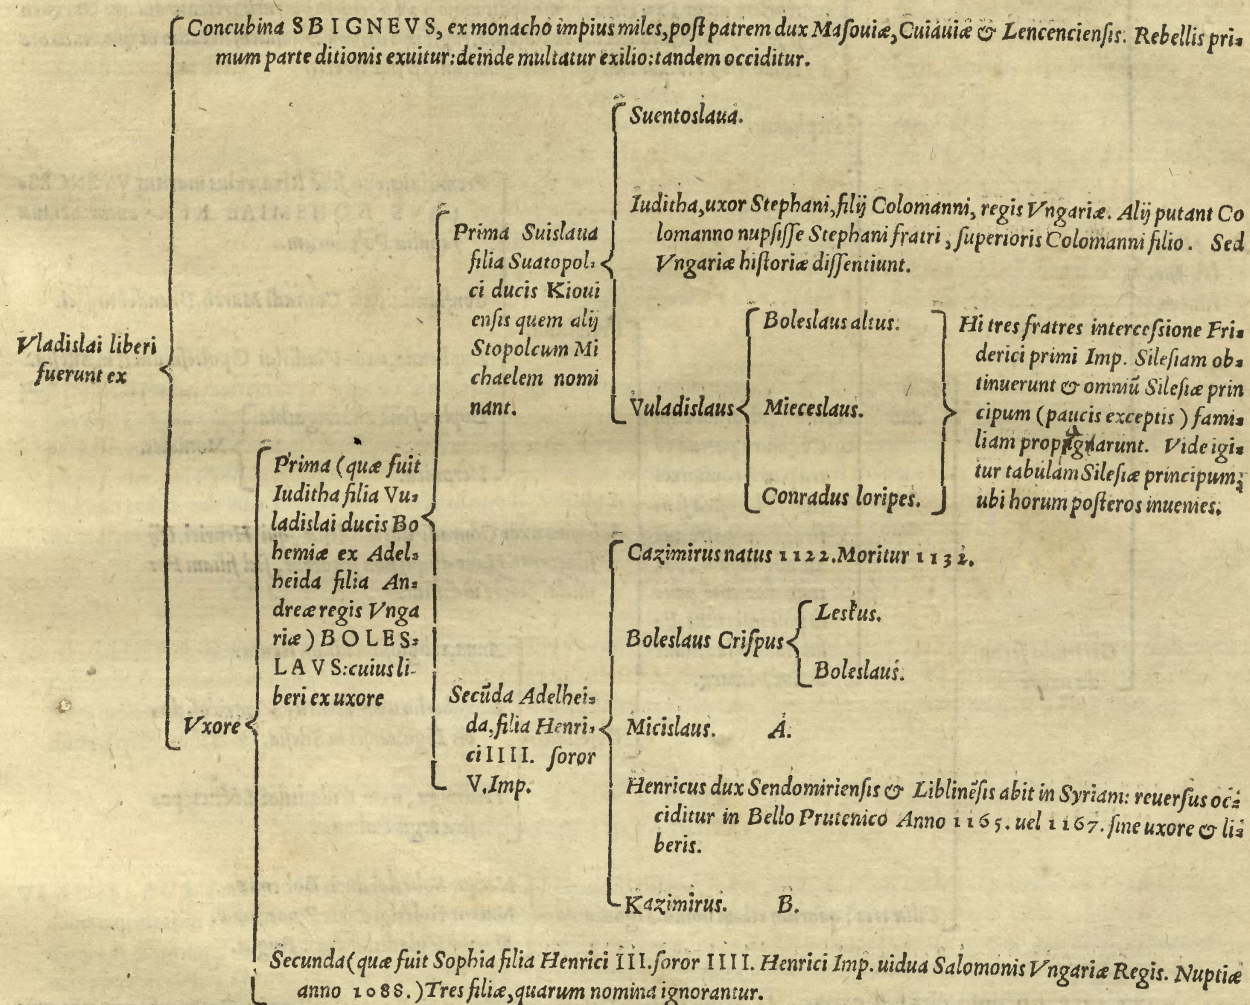 Concubina SBIGNEVS, ex monacho impius miles, post patrem dux Masouiæ, Cuiauiæ & Lencenciensis. Rebellis pri-
mum parte ditionis exuitur: deinde multatur exilio: tandem occiditur.
Vladislai liberi
fuerunt ex
Vxore
Prima (quæ fuit
Iuditha filia Vu-
ladislai ducis Bo
hemiæ ex Adel-
heida filia An-
dreæ regis Vnga
riæ) BOLES-
LAVS: cuius li-
beri ex uxore
Prima Suislaua
filia Suatopol-
ci ducis Kioui
ensis quem alij
Stopolcum Mi
chaelem nomi
nant.
Suentoslaua.
Iuditha, uxor Stephani, filij Colomanni, regis Vngariæ. Alij putant Co
lomanno nupsisse Stephani fratri, superioris Colomanni filio. Sed
Vngariæ historiæ dissentiunt.
Vuladislaus
Boleslaus altus.
Mieceslaus.
Conradus loripes.
Hi tres fratres intercessione Fri-
derici primi Imp. Silesiam ob-
tinuerunt & omniū Silesiæ prin
cipum (paucis exceptis) fami-
liam propagarunt. Vide igi-
tur tabulam Silesiæ principum,
ubi horum posteros inuenies.
Secūda Adelhei-
da, filia Henri-
ci IIII. soror
V. Imp.
Cazimirus natus 1122. Moritur 1132.
Boleslaus Crispus
Lestus.
Boleslaus.
Micislaus. A.
Henricus dux Sendomiriensis & Liblinēsis abit in Syriam: reuersus oc-
ciditur in Bello Prutenico Anno 1165. uel 1167. sine uxore & li-
beris.
Kazimirus. B.
Secunda (quæ fuit Sophia filia Henrici III. soror IIII. Henrici Imp. uidua Salomonis Vngariæ Regis. Nuptiæ
anno 1088.) Tres filiæ, quarum nomina ignorantur.